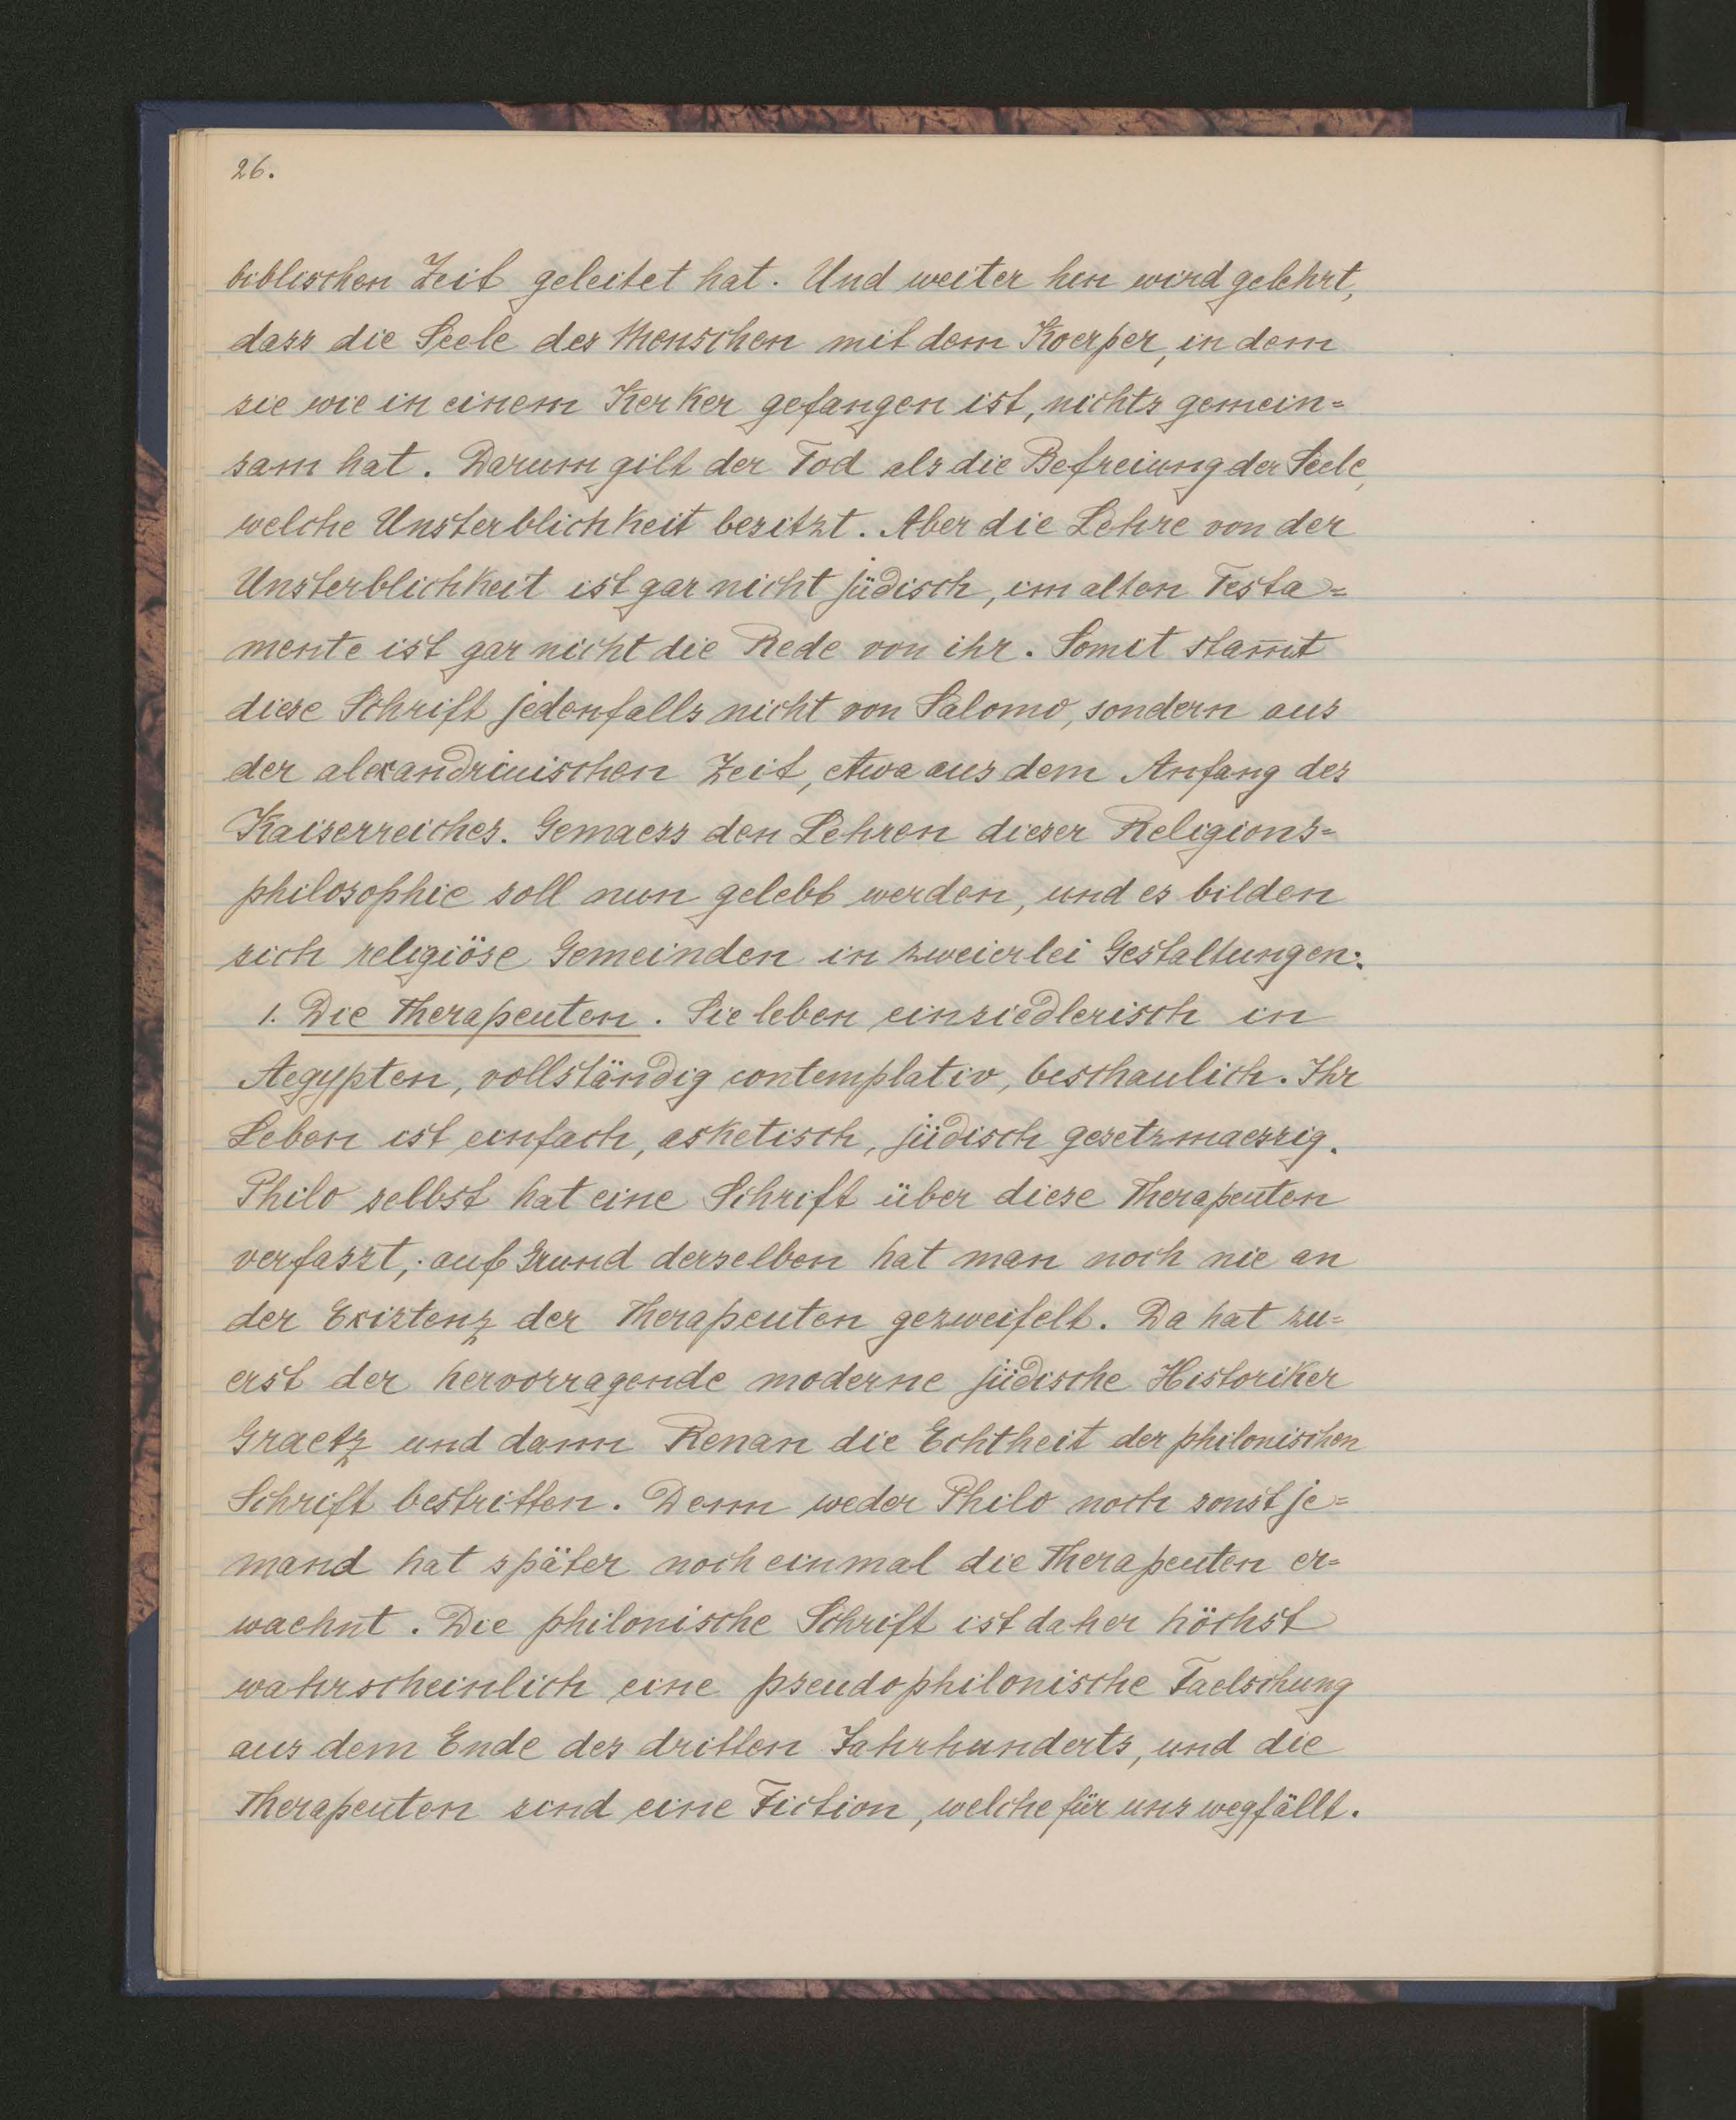 26.
biblischen Zeit geleitet hat. Und weiter hin wird gelehrt,
dass die Seele des Menschen mit dem Koerper, in dem
sie wie in einem Kerker gefangen ist, nichts gemein=
sam hat. Darum gilt der Tod als die Befreiung der Seele,
welche Unsterblichkeit besitzt. Aber die Lehre von der
Unsterblichkeit ist gar nicht jüdisch, im alten Testa=
mente ist gar nicht die Rede von ihr. Somit stam̅t
diese Schrift jedenfalls nicht von Salomo, sondern aus
der alexandrinischen Zeit, etwa aus dem Anfang des
Kaiserreiches. Gemaess den Lehren dieser Religions=
philosophie soll nun gelebt werden, und es bilden
sich religiöse Gemeinden in zweierlei Gestaltungen:
1. Die Therapeuten. Sie leben einsiedlerisch in
Aegypten, vollständig contemplativ, beschaulich. Ihr
Leben ist einfach, asketisch, jüdisch gesetzmaessig.
Philo selbst hat eine Schrift über diese Therapeuten
verfasst, auf Grund derselben hat man noch nie an
der Existenz der Therapeuten gezweifelt. Da hat zu=
erst der hervorragende moderne jüdische Historiker
Graetz und dann Renan die Echtheit der philonischen
Schrift bestritten. Denn weder Philo noch sonst je=
mand hat später noch einmal die Therapeuten er=
waehnt. Die philonische Schrift ist daher höchst
wahrscheinlich eine pseudophilonische Faelschung
aus dem Ende des dritten Jahrhunderts, und die
Therapeuten sind eine Fiction, welche für uns wegfällt.